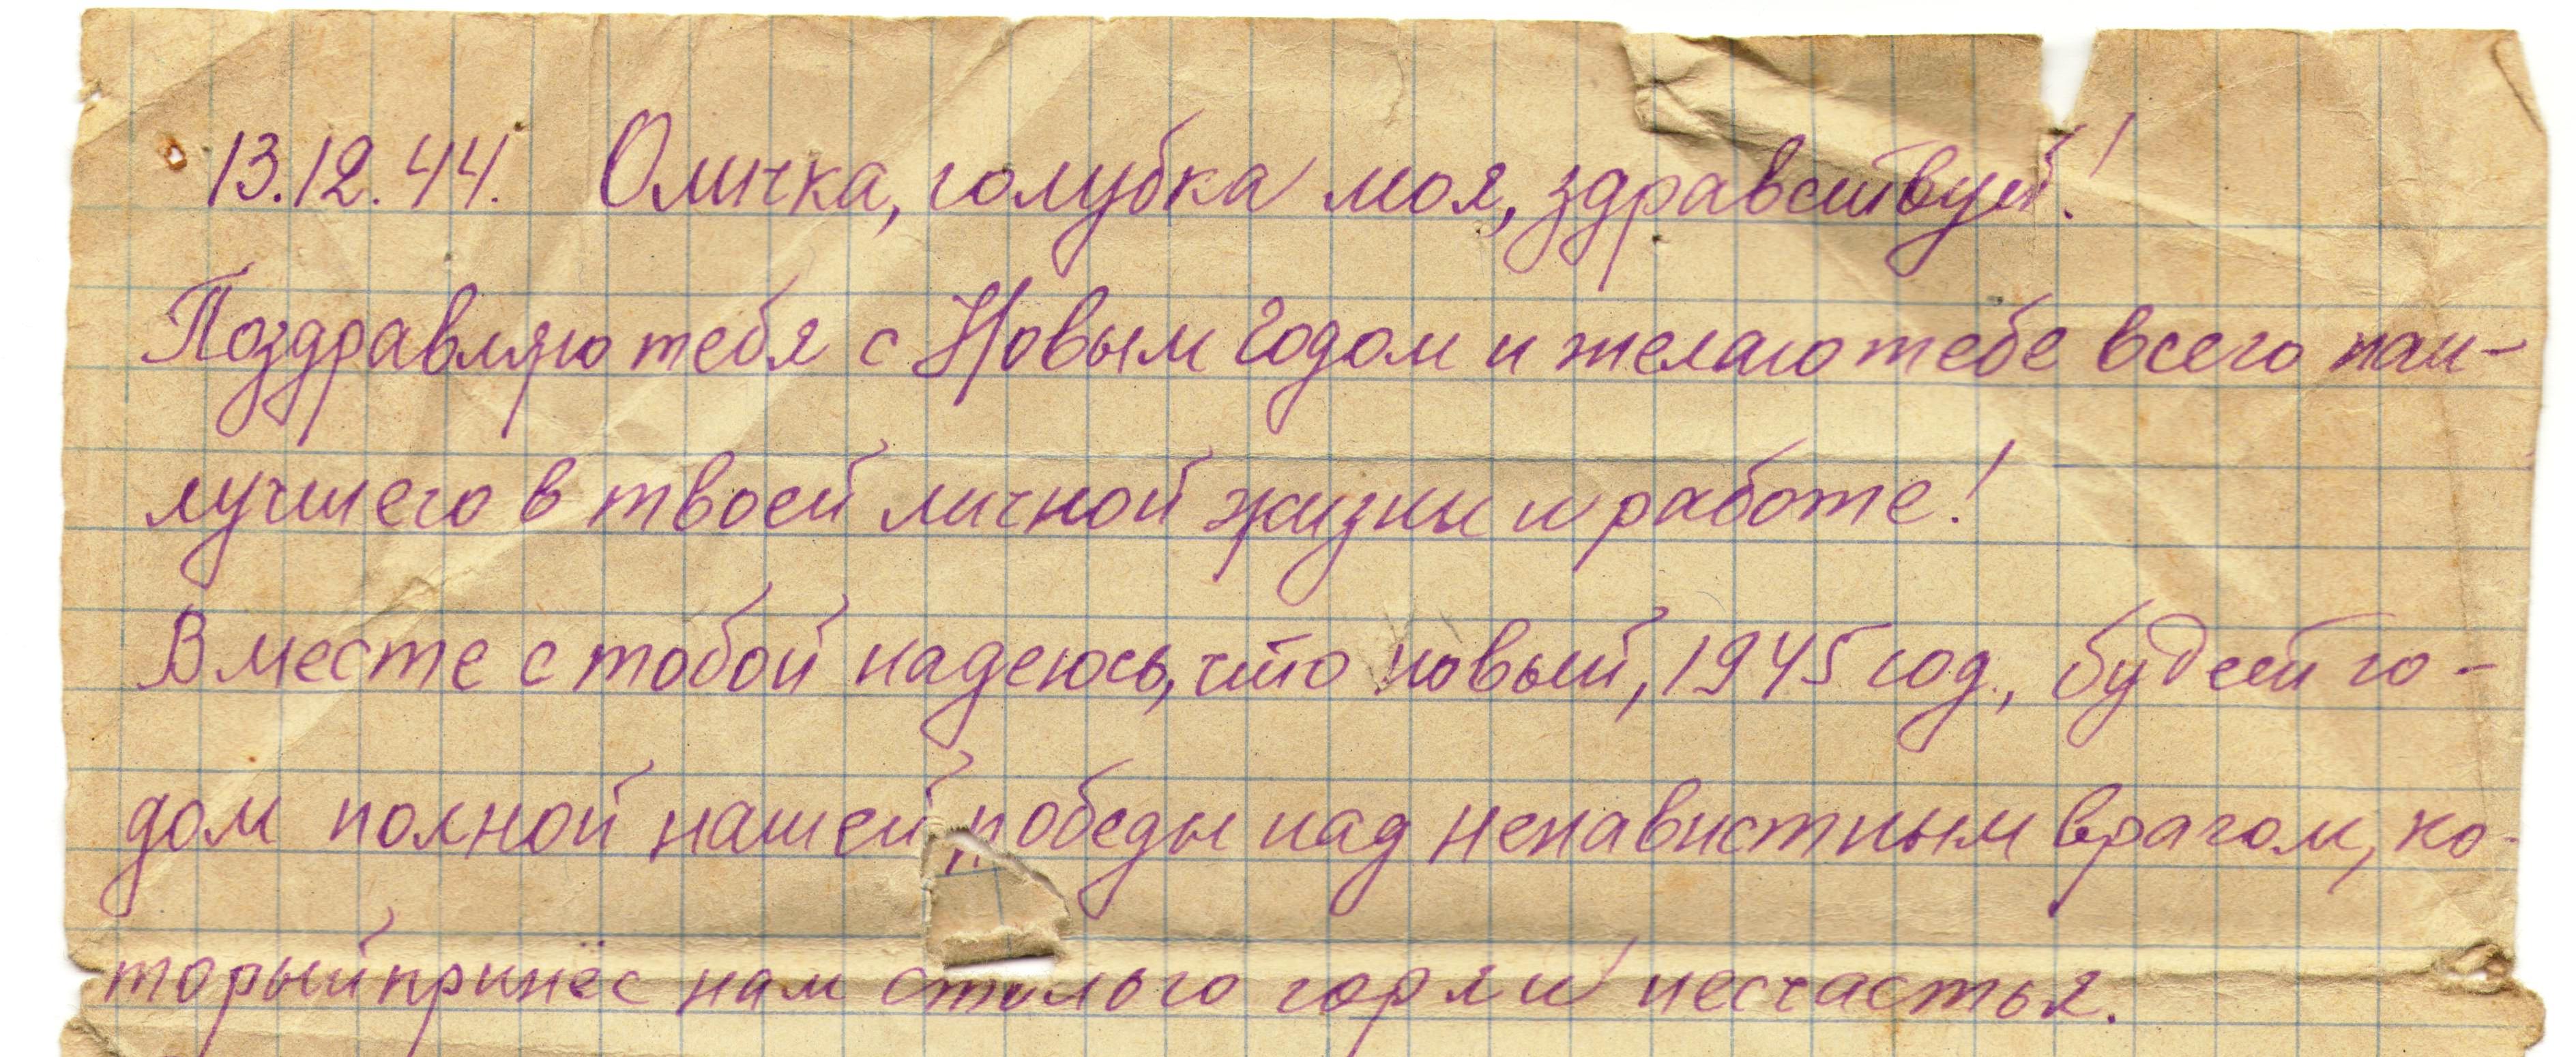 13.12.44. Оличка, голубка моя, здравствуй!
Поздравляю тебя с Новым Годом и желаю тебе всего наи-
лучшего в твоей личной жизни и работе!
Вместе с тобой надеюсь, что новый, 1945 год, будет го-
дом полной нашей победы над ненавистным врагом, ко-
торый принёс нам столько горя и несчастья.